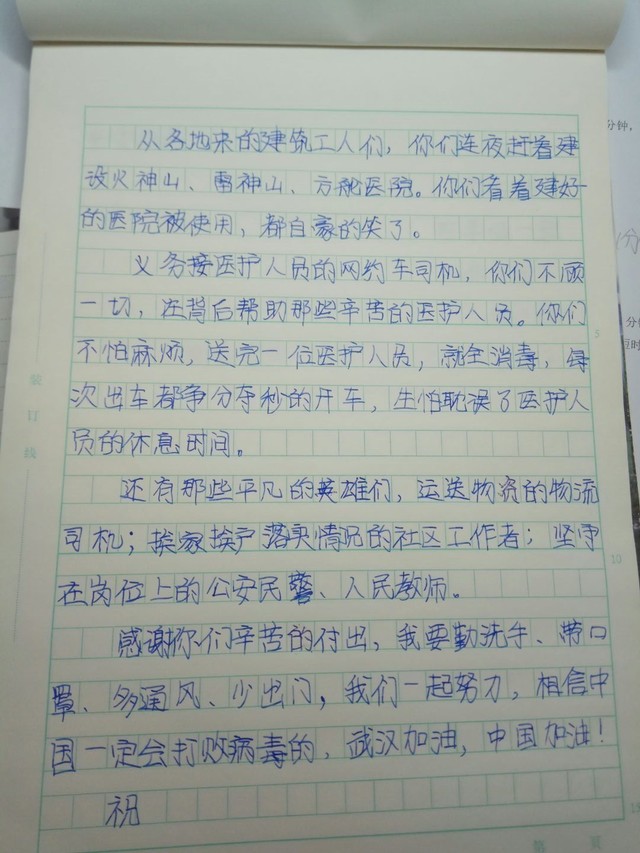 从各地来的建筑工人们，你们连夜赶着建
设火神山、雷神山、方舱医院。你们看着建好
的医院被使用，都自豪的笑了。
义务接医护人员的网约车司机，你们不顾
一切，在背后帮助那些辛苦的医护人员。你们
不怕麻烦，送完一位医护人员，就全消毒，每
次出车都争分夺秒的开车，生怕耽误了医护人
员的休息时间。
还有那些平凡的英雄们，运送物资的物流
司机；挨家挨户落实情况的社区工作者；坚守
在岗位上的公安民警、人民教师。
感谢你们辛苦的付出，我要勤洗手、带口
罩、多通风、少出门，我们一起努力，相信中
国一定会打败病毒的，武汉加油，中国加油！
祝
装订线
5
10
15
第 页
分钟，
(分